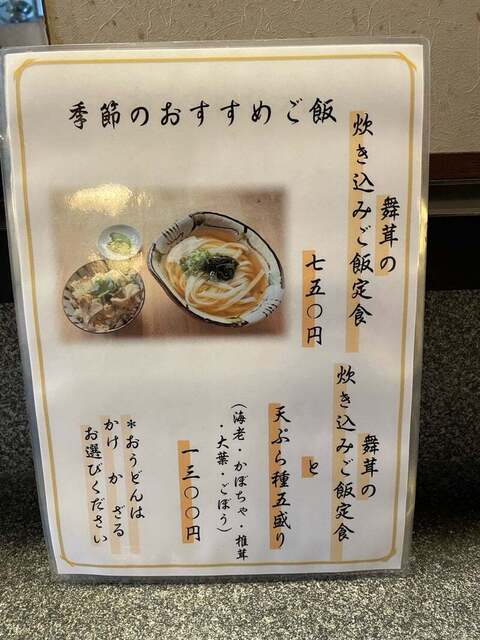 季節のおすすめご飯
舞茸の
炊き込みご飯定食
七五〇円
舞茸の
炊き込みご飯定食
と
天ぷら種五盛り
（海老・かぼちゃ・椎茸
・大葉・ごぼう）
一三〇〇円
*おうどんは
かけ か ざる
お選びください